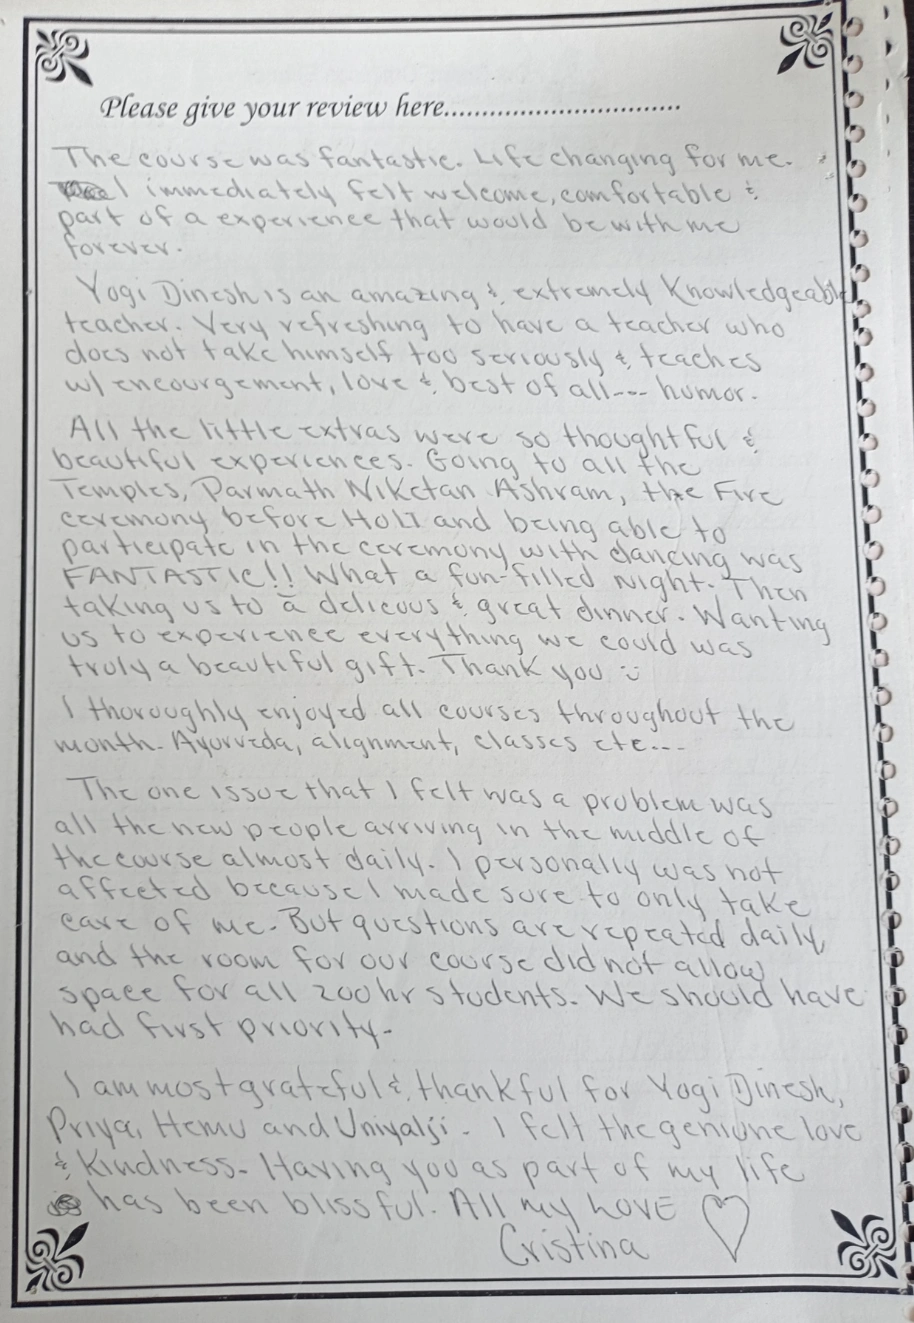 Please give your review here...............................
The course was fantastic. Life changing for me.
I immediately felt welcome, comfortable &
part of a experience that would be with me
forever.
Yogi Dinesh is an amazing & extremely Knowledgeable
teacher. Very refreshing to have a teacher who
does not take himself too seriously & teaches
w/ encourgement, love & best of all--- humor.
All the little extras were so thoughtful &
beautiful experiences. Going to all the
Temples, Parmath Niketan Ashram, the Fire
ceremony before HoLI and being able to
participate in the ceremony with dancing was
FANTASTIC!! What a fun-filled night. Then
taking us to a delicous & great dinner. Wanting
us to experience everything we could was
truly a beautiful gift. Thank you :)
I thoroughly enjoyed all courses throughout the
month. Ayurveda, alignment, classes etc...
The one issue that I felt was a problem was
all the new people arriving in the middle of
the course almost daily. I personally was not
affected because I made sure to only take
care of me. But questions are repeated daily
and the room for our course did not allow
space for all 200hr students. We should have
had first priority.
I am most grateful & thankful for Yogi Dinesh,
Priya, Hemu and Uniyalji. I felt the geniune love
& Kindness. Having you as part of my life
has been blissful. All my LOVE ♡
Cristina